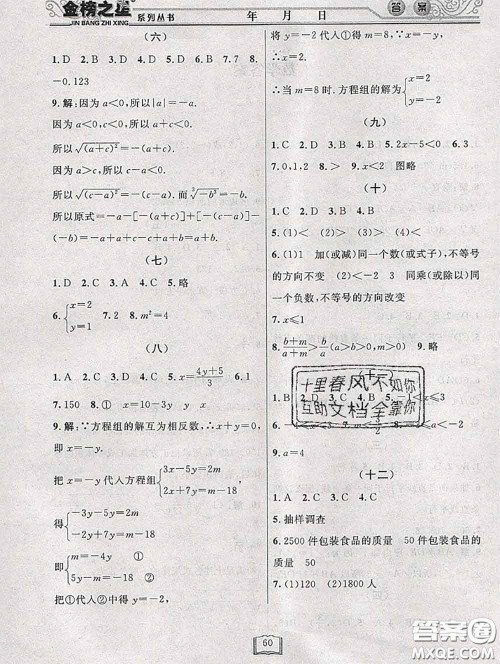 金榜之星 系列丛书
JIN BANG ZHI XING
年 月 日
答案
(六)
1. D 2. A 3. C 4. D 5. D 6. 2 7. 7 8.
-0.123
9. 解:因为 a<0,所以|a|=-a.
因为 a<0,c<0,所以 a+c<0.
所以 √(a+c)²=-(a+c).
因为 a>c,所以 c-a<0.
所以 √(c-a)²=-(c-a),而 ³√-b³=-b.
所以原式=-a-[-(a+c)]+[-(c-a)]-
(-b)=-a+a+c-c+a+b=a+b.
(七)
1. D 2. B 3. A 4. C 5. 略
6. {x=2 y=1 7. 2 8. m²=4
(八)
1. A 2. C 3. A 4. D 5. x=(4y+5)/3 6. 1
7. 150 8. ① x=10-3y y x
9. 解:∵方程组的解互为相反数,∴x+y=0,
即 x=-y.
把 x=-y 代入方程组{3x-5y=2m 2x+7y=m-18
得{-3y-5y=2m -2y+7y=m-18
即{m=-4y ① 5y-m=-18 ②
把①代入②中得 y=-2,
将 y=-2 代入①得 m=8,∵x=-y,∴x=2.
∴当 m=8 时.方程组的解为{x=2, y=-2.
(九)
1. C 2. D 3. B 4. B 5. 2x-5<0 6. 3
7. 0,1,2 8. > 9. x<2 图略
(十)
1. C 2. A 3. B 4. A
5. (1)< (2)> (3)> (4)<
6. (1)1 加(或减)同一个数(或式子),不等号
的方向不变 (2)<-2 3 同乘(或除以)同
一个负数,不等号的方向改变
7. x≤1
8. (b+m)/(a+m)>b/a(a>b>0,m>0) 9. 略
十里春风不如你
互助文档全靠你
9. a=4
(十二)
1. A 2. C 3. C 4. D
5. 抽样调查
6. 2500 件包装食品的质量 50 件包装食品的
质量 50
7. (1)120 (2)1800 人
60
答案圈
MXQE.COM